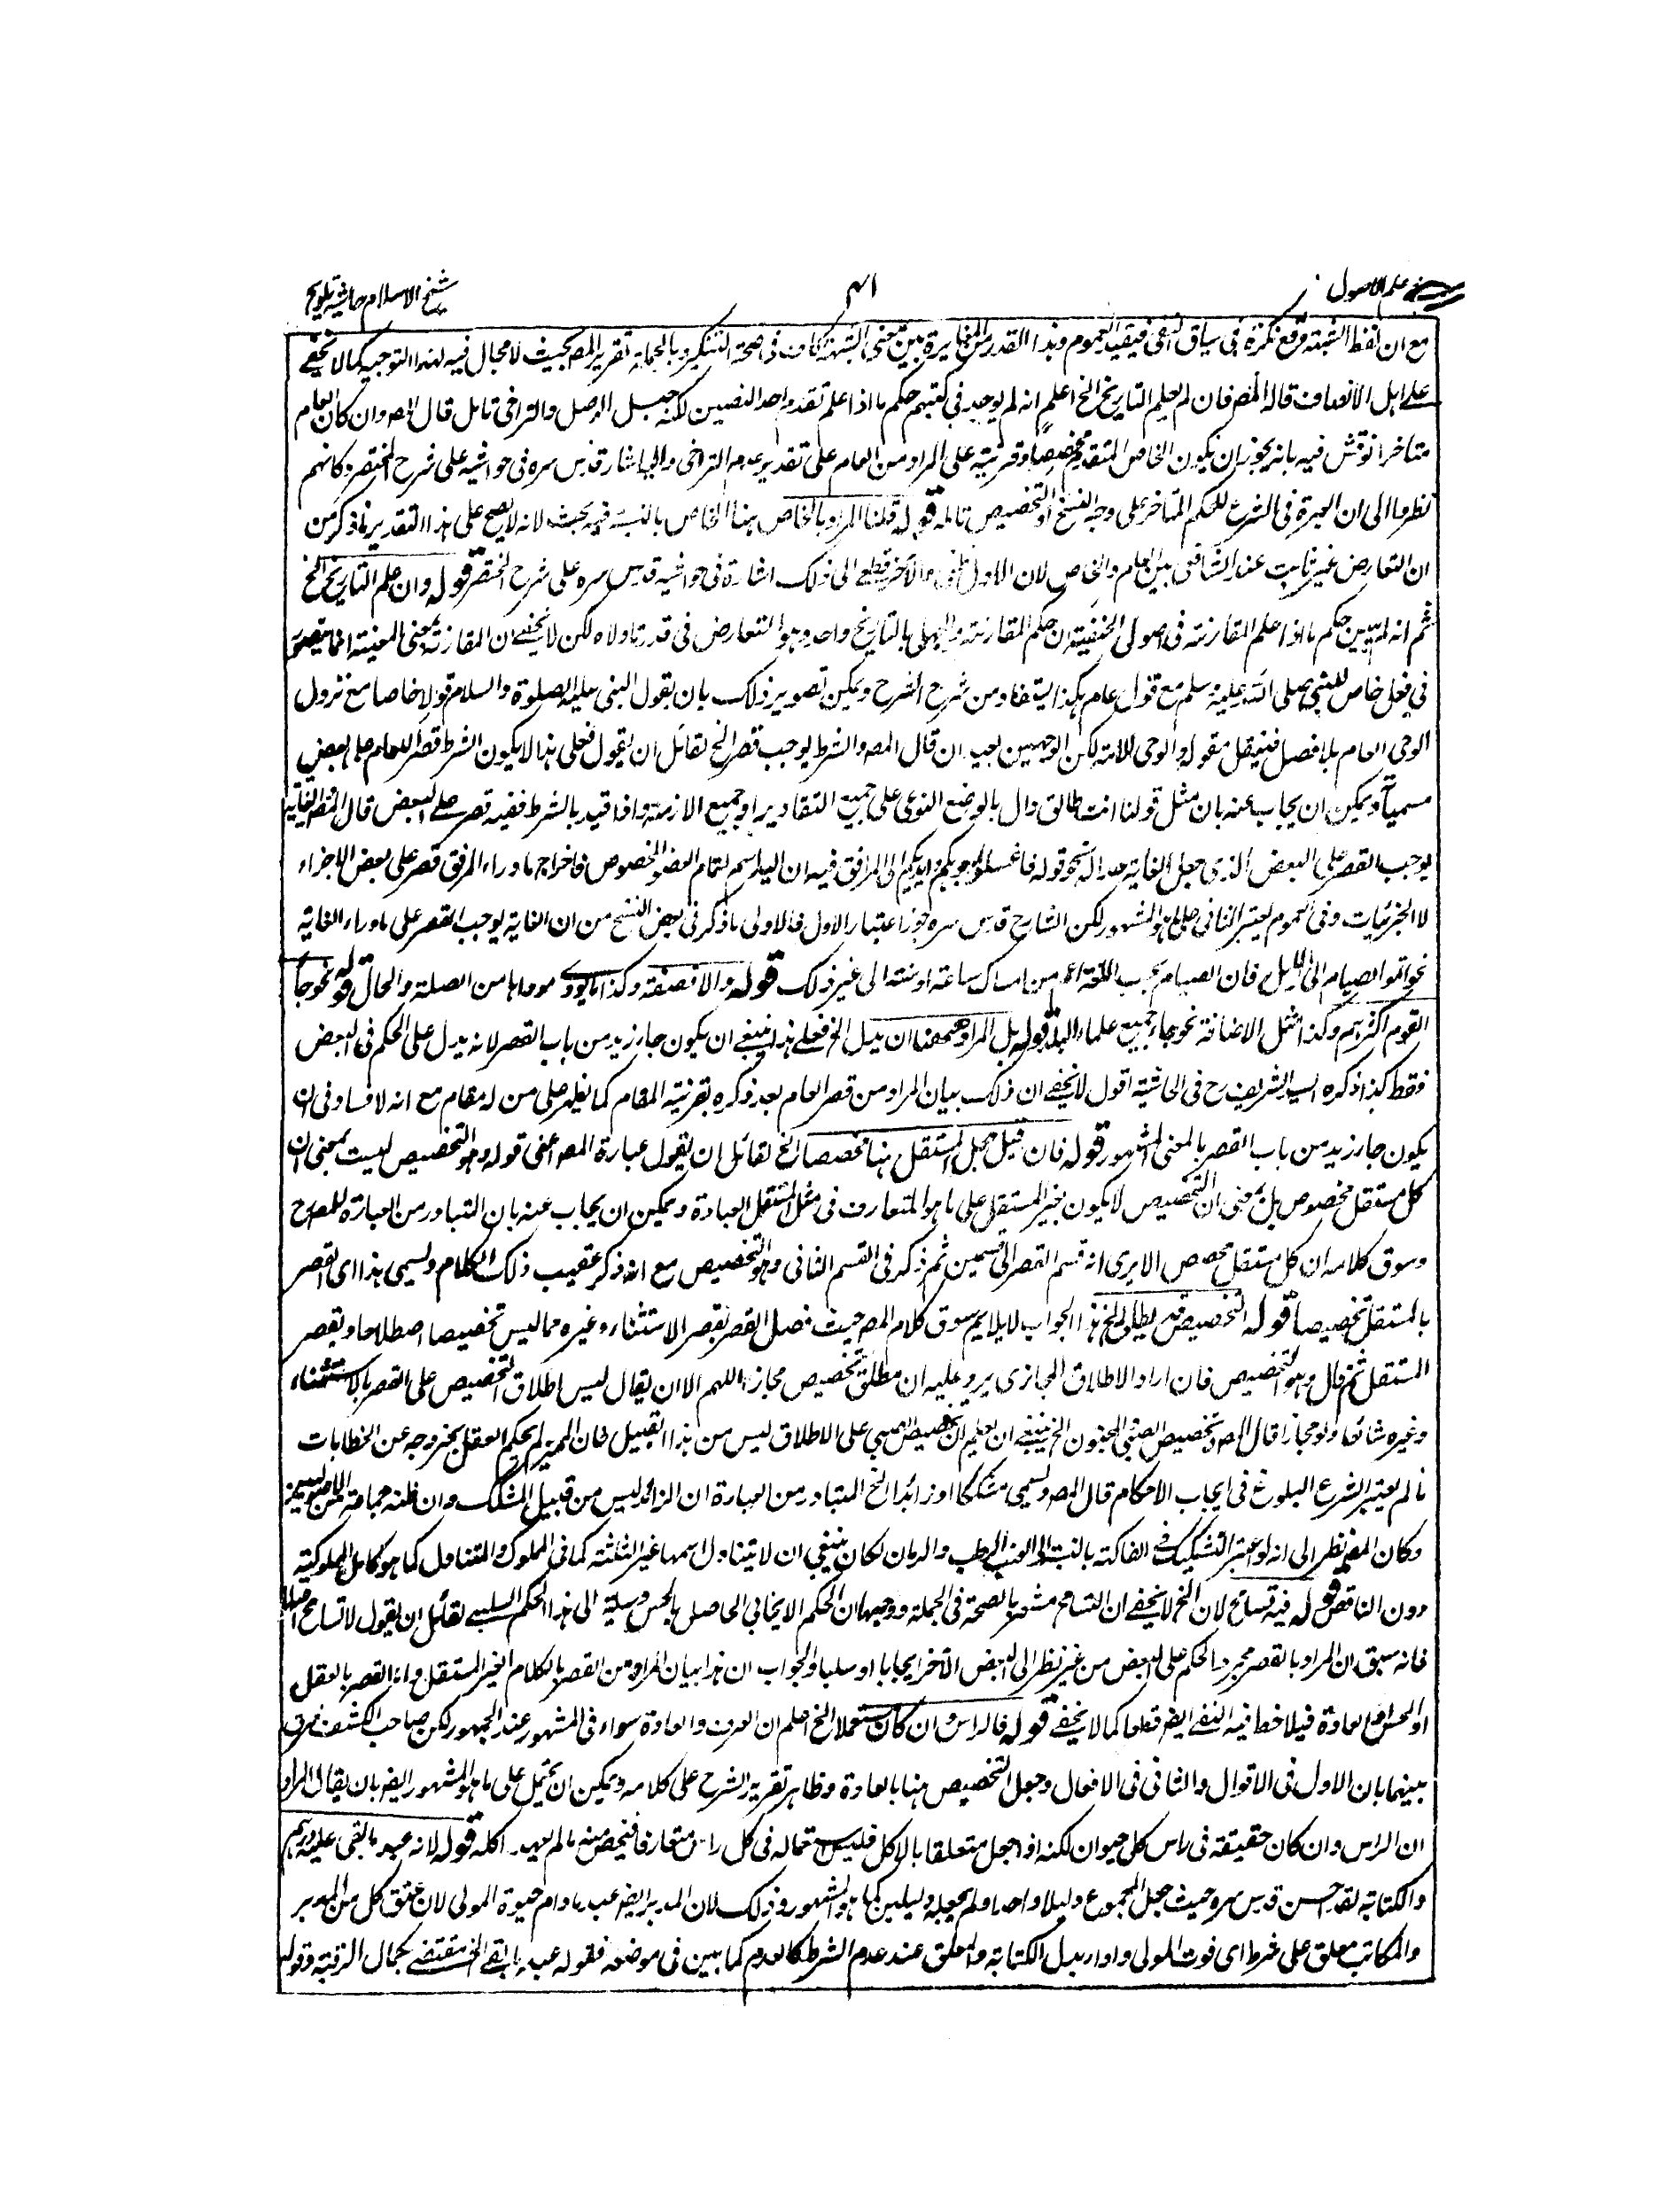 علم الاصول
۴۱
شیخ الاسلام حاشیه تلویح
مع ان لفظ الشبهة وقع نكرة فی سیاق النفی فیفید العموم وهذا القدر من المغایرة بین معنی الشبهة كاف فی صحة التنكیر وبالجملة تقریر المص بحیث لا مجال فیه لهذا التوجیه كما لا یخفی
علی اهل الانصاف قال المص فان لم یعلم التاریخ الخ اعلم انه لم یوجد فی كتبهم حكم ما اذا علم تقدم احد النصین لكنه جهل الوصل والتراخی تامل قال المص وان كان العام
متاخرا نوقش فیه بانه یجوز ان یكون الخاص المتقدم مخصصا وقرینة علی المراد من العام علی تقدیر عدم التراخی والیه اشار قدس سره فی حواشیه علی شرح المختصر وكانهم
نظروا الی ان العبرة فی الشرع للحكم المتاخر علی وجه النسخ او التخصیص تامله قوله قلنا المراد بالخاص هنا الخاص بالنسبة فیه بحث لانه لا یصح علی هذا التقدیر ما ذكر من
ان التعارض غیر ثابت عند الشافعی بین العام والخاص لان الاول ظنی والآخر قطعی الی ذلك اشارة فی حواشیه قدس سره علی شرح المختصر قوله وان علم التاریخ الخ
ثم انه لم یبین حكم ما اذا علم المقارنة فی اصول الحنفیة ان حكم المقارنة والجهل بالتاریخ واحد وهو التعارض فی قدر تناولاه لكن لا یخفی ان المقارنة بمعنی المعیة انما یتصور
فی فعل خاص للنبی صلی الله علیه وسلم مع قول عام هكذا یستفاد من شرح الشرح ویمكن تصویر ذلك بان یقول النبی علیه الصلوة والسلام قولا خاصا مع نزول
الوحی العام بلا فصل فینقل مقوله والوحی للامة لكن الوجهین بعید ان قال المص والشرط یوجب قصر الخ لقائل ان یقول فعلی هذا لا یكون الشرط قصر العام علی بعض
مسمیاته ویمكن ان یجاب عنه بان مثل قولنا انت طالق دال بالوضع النوعی علی جمیع التقادیر او جمیع الازمنة واذا قید بالشرط ففیه قصر علی البعض قال المص الغایة
یوجب القصر علی البعض الذی جعل الغایة حدا له نحو قوله فاغسلوا وجوهكم وایدیكم الی المرافق فیه ان الید اسم لتمام العضو المخصوص فاخراج ما وراء المرفق قصر علی بعض الاجزاء
لا الجزئیات وفی العموم یعتبر الثانی علی ما هو المشهور لكن الشارح قدس سره جوز اعتبار الاول فالاولی ما ذكر فی بعض النسخ من ان الغایة یوجب القصر علی ما وراء الغایة
نحو اتموا الصیام الی اللیل فان الصیام بحسب اللغة اعم من امساك ساعة او سنة الی غیر ذلك قوله والا فصفة وكذا ما یؤدی مؤداها من الصلة والحال قوله نحو جاء
القوم اكثرهم وكذا مثل الاضافة نحو جاء جمیع علماء البلد قوله بل المراد ههنا ان یدل الخ فعلی هذا ینبغی ان یكون جاء زید من باب القصر لانه یدل علی الحكم فی البعض
فقط كذا ذكره السید الشریف رح فی الحاشیة اقول لا یخفی ان ذلك بیان المراد من قصر العام بعد ذكره بقرینة المقام كما یظهر علی من له مقام مع انه لا فساد فی ان
یكون جاء زید من باب القصر بالمعنی المشهور قوله فان قیل جعل المستقل هنا مخصصا الخ لقائل ان یقول عبارة المص اعنی قوله وهو التخصیص لیست بمعنی ان
كل مستقل مخصوص بل بمعنی ان التخصیص لا یكون بغیر المستقل علی ما هو المتعارف فی مثل العبادة ویمكن ان یجاب عنه بان المتبادر من العبارة المصرح
وسوق كلامه ان كل مستقل مخصص الا یری انه قسم القصر الی قسمین ثم ذكر فی القسم الثانی وهو التخصیص مع انه ذكر عقیب ذلك الكلام ویسمی هذا ای القصر
بالمستقل تخصیصا قوله التخصیص قد یطلق الخ هذا الجواب لا یلایم سوق كلام المص حیث فصل القصر بقصر الاستثناء وغیره مما لیس تخصیصا اصطلاحا وبقصر
المستقل ثم قال وهو التخصیص فان اراد الاطلاق المجازی یرد علیه ان مطلق تخصیص مجاز اللهم الا ان یقال لیس اطلاق التخصیص علی القصر بالاستثناء
وغیره شائعا ولو مجازا قال المص وتخصیص الصبی والمجنون الخ ینبغی ان یعلم ان تخصیص الصبی علی الاطلاق لیس من هذا القبیل فان الممیز لم یحكم العقل بخروجه عن الخطابات
ما لم یعتبر الشرع البلوغ فی ایجاب الاحكام قال المص ویسمی مشككا او زائدا الخ المتبادر من العبارة ان الزائد لیس من قبیل المشكك وان ظنه جماعة من الاصولیین
وكان المص نظر الی انه لو اعتبر التشكیك فی الفاكهة بالنسبة الی العنب والرطب والرمان لكان ینبغی ان لا یتناول اسمها غیر الثلثة كما فی المملوك والمتناول كما هو كامل المملوكیة
دون الناقص قوله فیه تسامح لان الخ لا یخفی ان التسامح مشعر بالصحة فی الجملة ووجهها ان الحكم الایجابی الحاصل بالحس وسیلة الی هذا الحكم السلبی لقائل ان یقول لا تسامح اصلا
فانه سبق ان المراد بالقصر مجرد الحكم علی البعض من غیر نظر الی البعض الآخر ایجابا او سلبا والجواب ان هذا بیان المراد من القصر بالكلام الغیر المستقل واما القصر بالعقل
او الحس او العادة فیلاحظ فیه النفی ایضا قطعا كما لا یخفی قوله فالراس وان كان مستعملا الخ اعلم ان العرف والعادة سواء فی المشهور عند الجمهور لكن صاحب الكشف فرق
بینهما بان الاول فی الاقوال والثانی فی الافعال وجعل التخصیص هنا بالعادة وظاهر تقریر الشرح علی كلامه ویمكن ان یحمل علی ما هو المشهور ایضا بان یقال المراد
ان الراس وان كان حقیقة فی راس كل حیوان لكنه اذا جعل متعلقا بالاكل فلیس استعماله فی كل راس متعارفا فیخص منه ما لم یعهد اكله قوله لانه عبد ما بقی علیه درهم
والكتابة لقد احسن قدس سره حیث جعل المجموع دلیلا واحدا ولم یجعله دلیلین كما هو المشهور وذلك لان المدبر ایضا عبد ما دام حیوة المولی لان عتق كل من المدبر
والمكاتب معلق علی شرط ای فوت المولی واداء بدل الكتابة والمعلق عند عدم الشرط كالعدم كما بین فی موضعه فقوله عبد ما بقی الخ مقتضی بكمال الرقیة وقوله